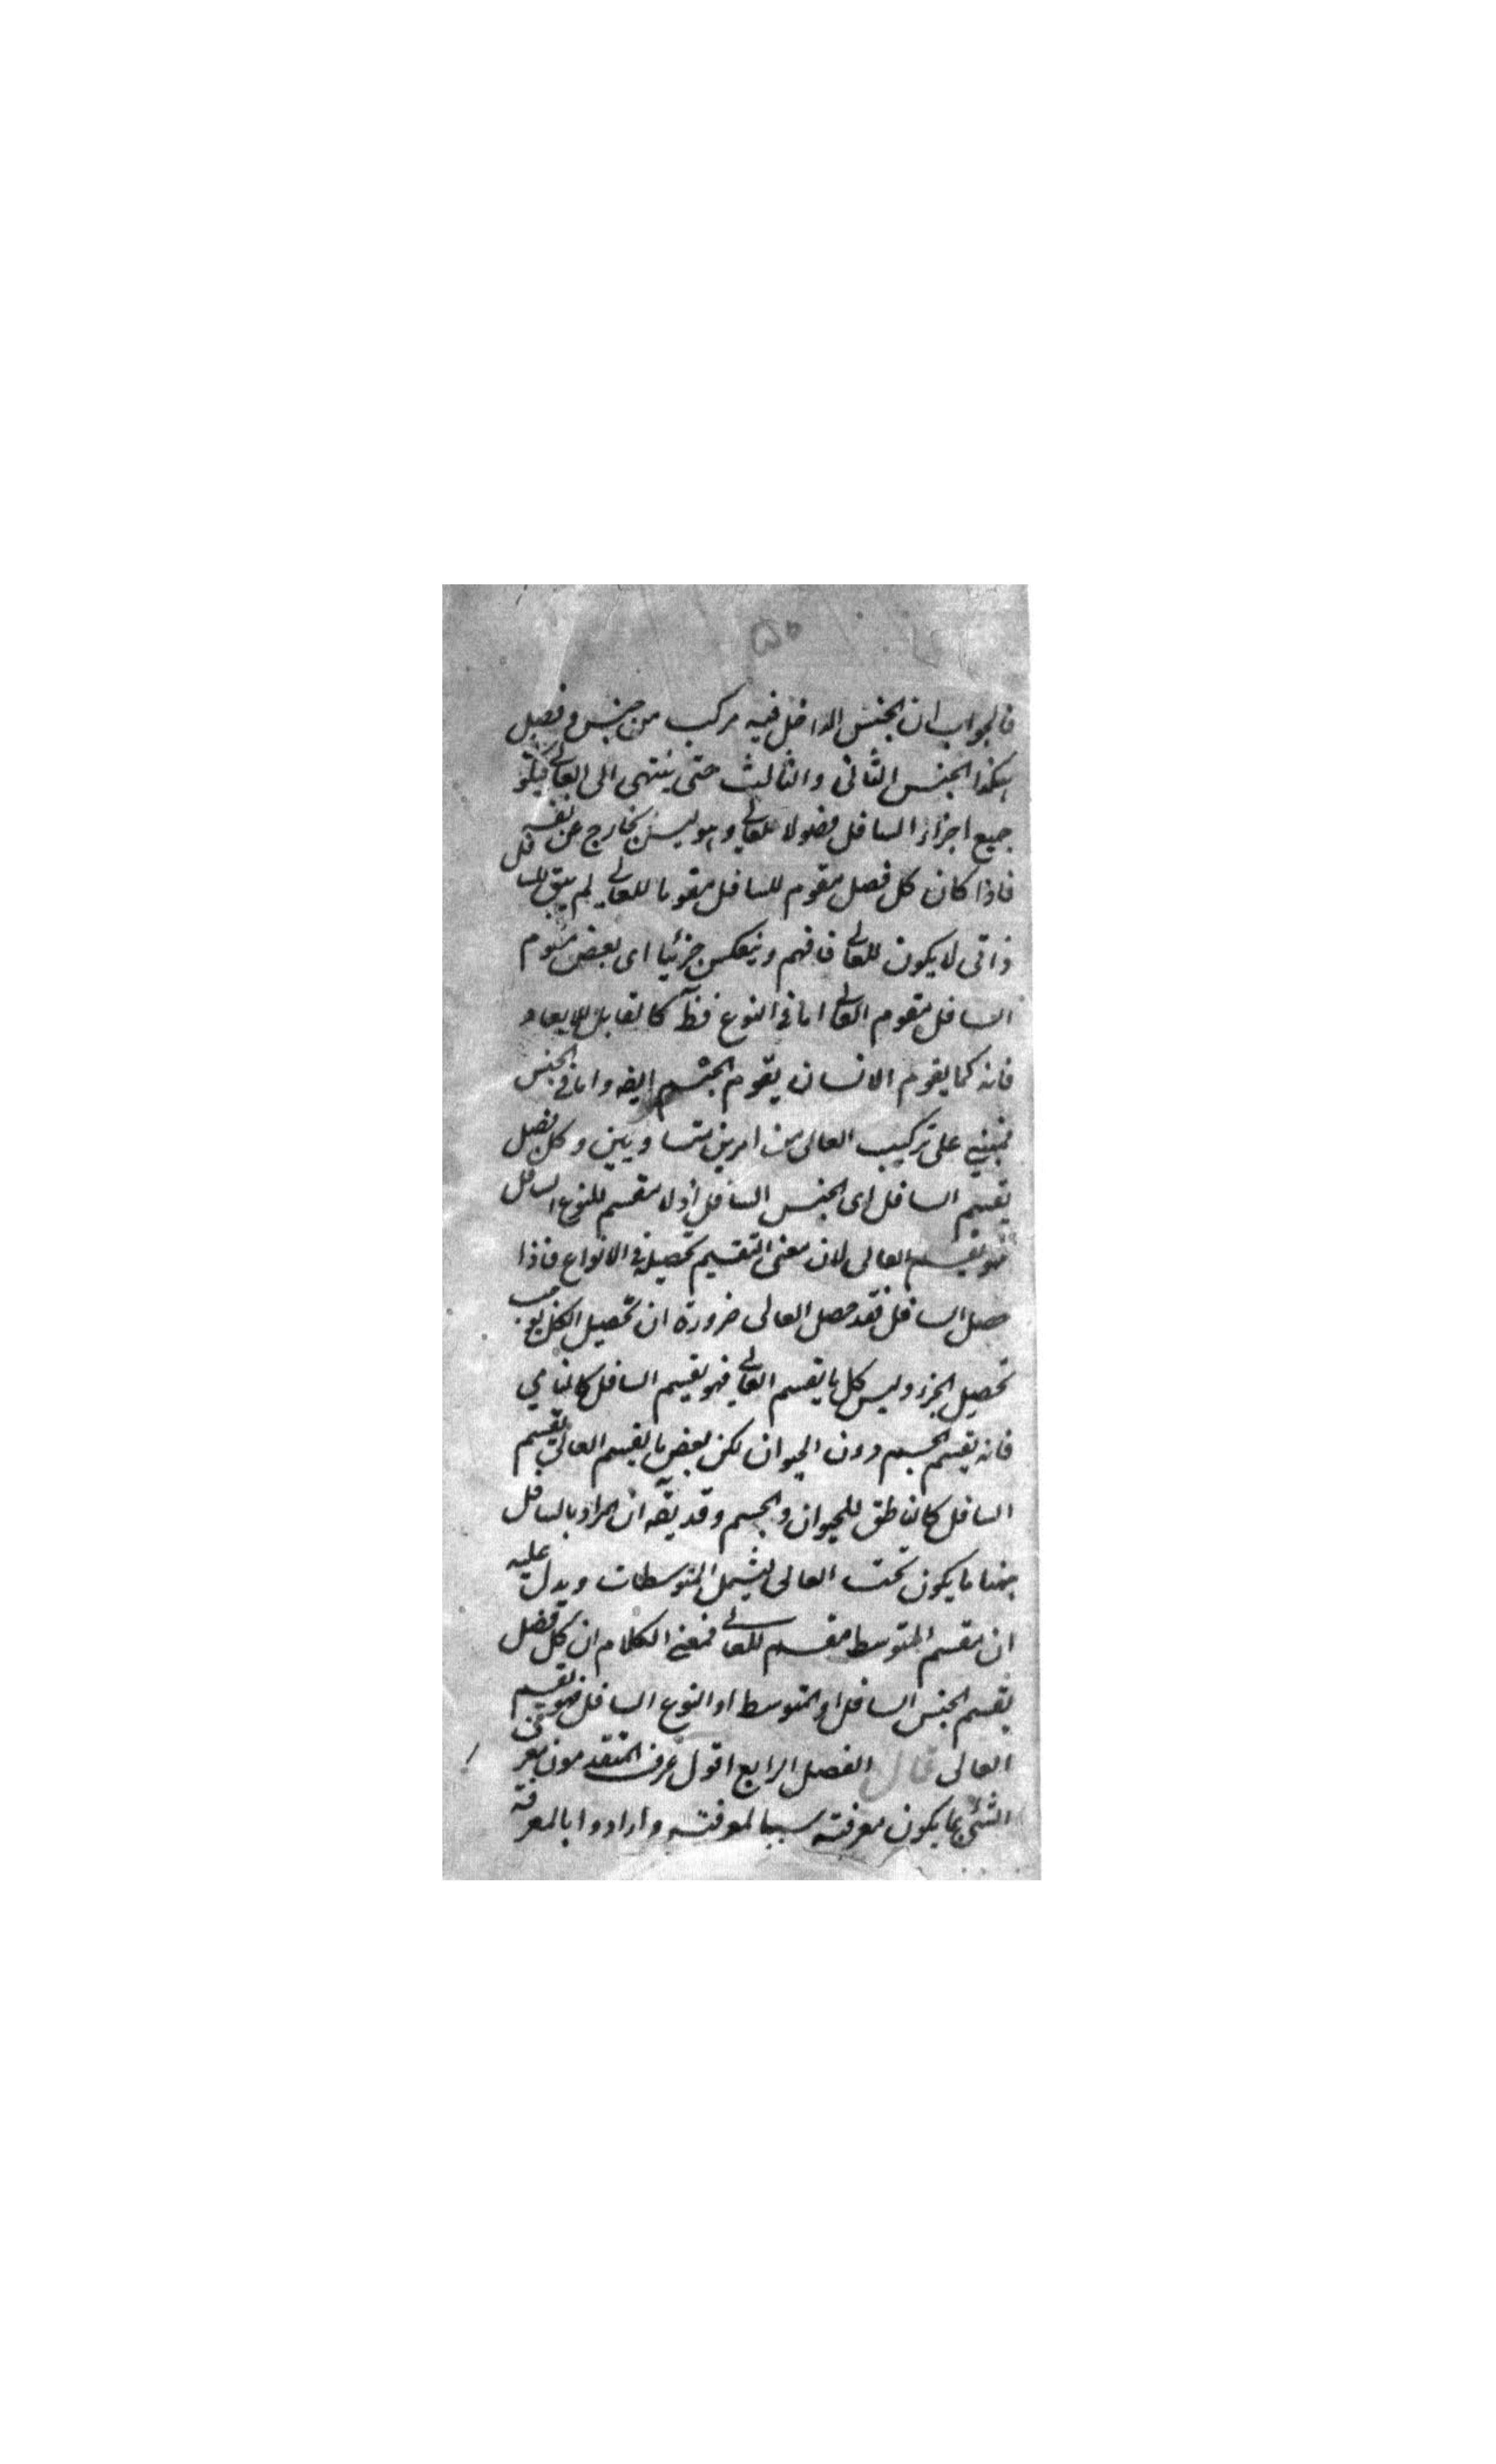 ۵۰
فالجواب ان الجنس الداخل فيه مركب من جنس و فصل
هكذا الجنس الثانى والثالث حتى ينتهى الى العالى فيكو
جميع اجزاء السافل فصولا للعالى وهو ليس بخارج عن نفسه
فاذا كان كل فصل مقوم للسافل مقوما للعالى لم يبق للسافل
ذاتى لا يكون للعالى فافهم وينعكس جزئيا اى بعض مقوم
السافل مقوم العالى اما فى النوع فظ كالقابل للابعاد
فانه كما يقوم الانسان يقوم الجسم ايضه واما فى الجنس
فمبنى على تركيب العالى من امرين متساويين وكل فصل
يقسم السافل اى الجنس السافل اذ لا مقسم للنوع السافل
فهو يقسم العالى لان معنى التقسيم تحصيله فى الانواع فاذا
حصل السافل فقد حصل العالى ضرورة ان تحصيل الكل يوجب
تحصيل الجزء وليس كل ما يقسم العالى فهو يقسم السافل كالنامى
فانه يقسم الجسم دون الحيوان لكن بعض ما يقسم العالى يقسم
السافل كالناطق للحيوان والجسم وقد يقه ان المراد بالسافل
ههنا ما يكون تحت العالى ليشمل المتوسطات ويدل عليه
ان مقسم المتوسط مقسم للعالى فمعنى الكلام ان كل فصل
يقسم الجنس السافل او المتوسط او النوع السافل فهو يقسم
العالى قال الفصل الرابع اقول عرف المتقدمون معر
الشئ بما يكون معرفته سببا لمعرفته وارادوا بالمعرفة